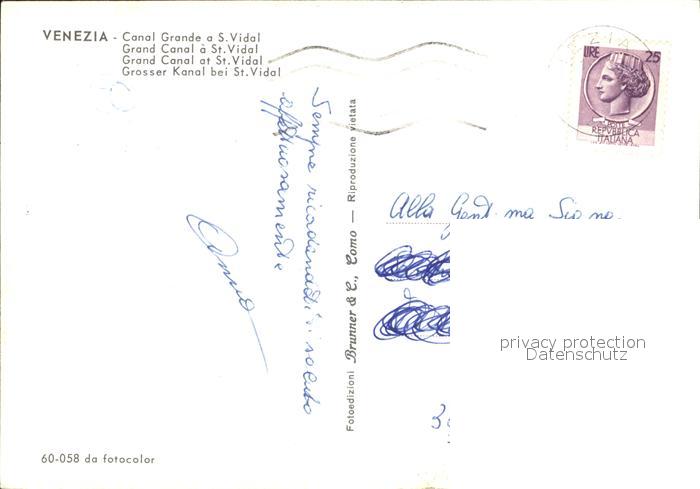 VENEZIA - Canal Grande a S. Vidal
Grand Canal à St. Vidal
Grand Canal at St. Vidal
Grosser Kanal bei St. Vidal
LIRE 25
POSTE
REPVBBLICA
ITALIANA
Sempre ricordandoti ti saluto
affettuosamente
Fotoedizioni Brunner & C., Como — Riproduzione vietata
Alla Gent.ma Sig.na
privacy protection
Datenschutz
60-058 da fotocolor